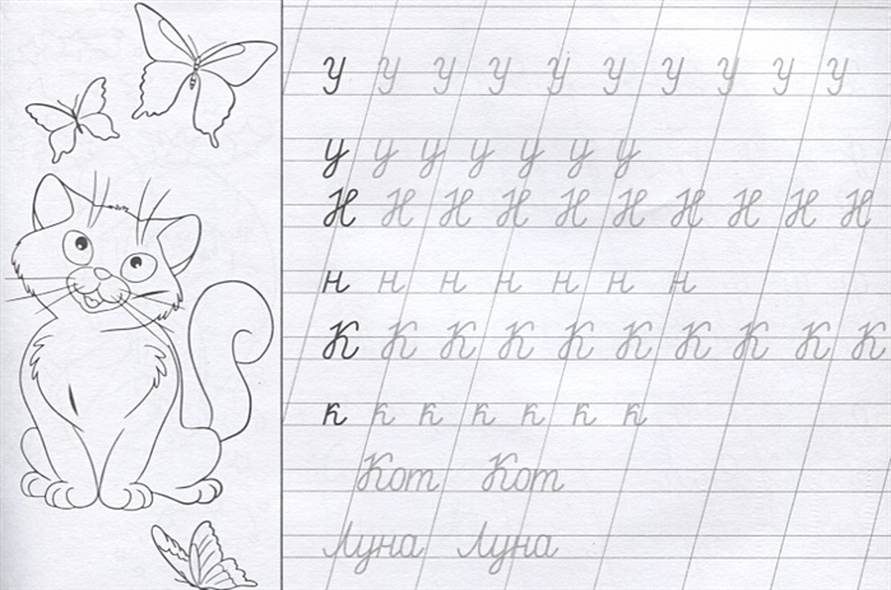 У У У У У У У У У У
у у у у у у у
Н Н Н Н Н Н Н Н Н Н
н н н н н н н
К К К К К К К К К К
к к к к к к к
Кот Кот
Луна Луна